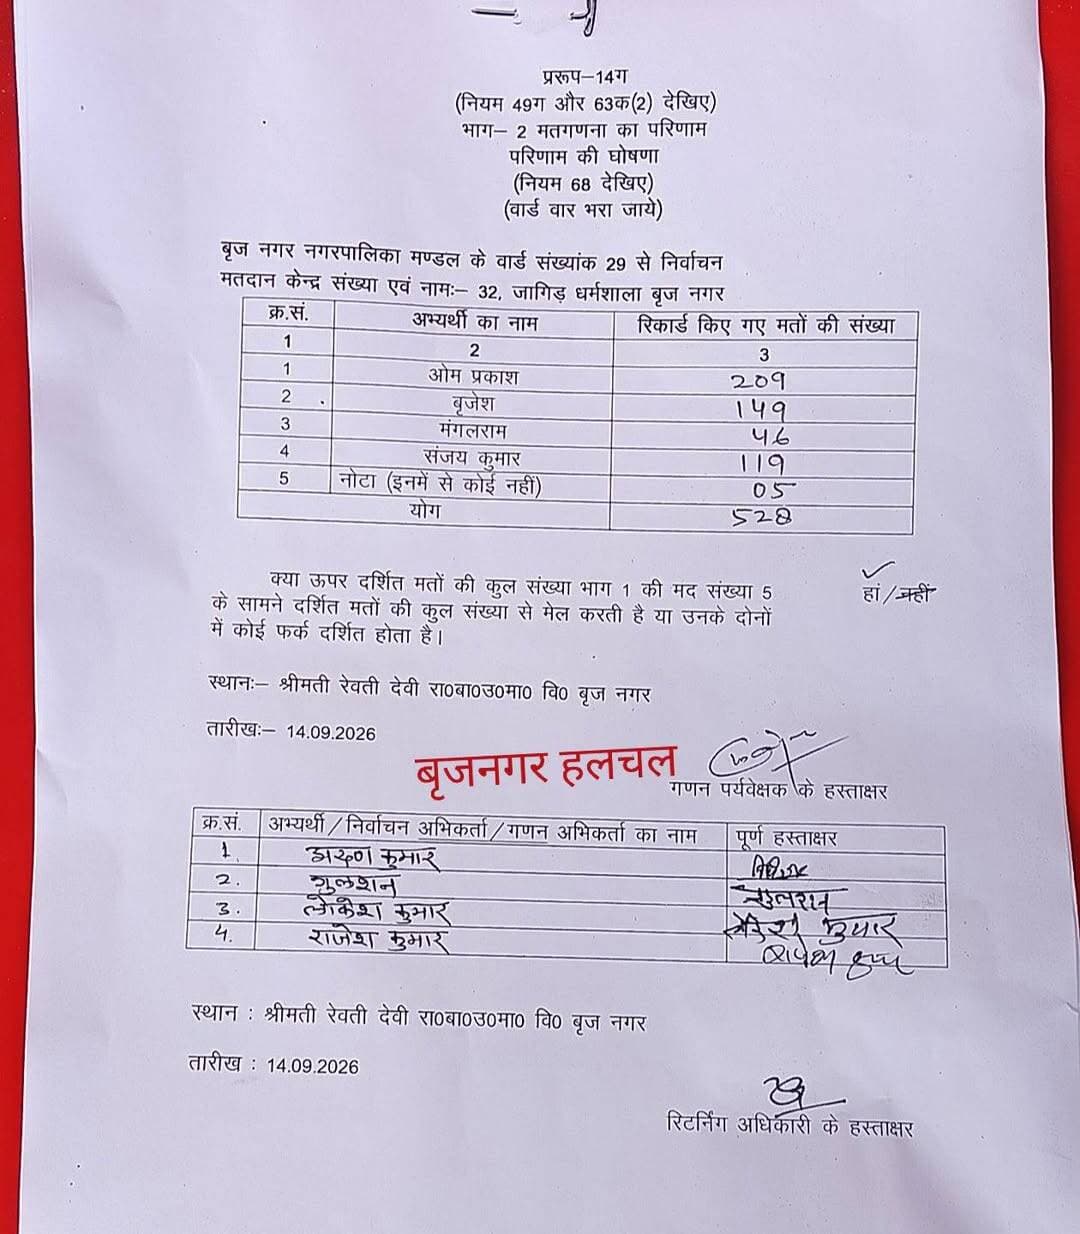 प्ररूप–14ग
(नियम 49ग और 63क(2) देखिए)
भाग– 2 मतगणना का परिणाम
परिणाम की घोषणा
(नियम 68 देखिए)
(वार्ड वार भरा जाये)
बृज नगर नगरपालिका मण्डल के वार्ड संख्यांक 29 से निर्वाचन
मतदान केन्द्र संख्या एवं नामः– 32, जागिड़ धर्मशाला बृज नगर
क्र.सं. अभ्यर्थी का नाम रिकार्ड किए गए मतों की संख्या
1 2 3
1 ओम प्रकाश 209
2 बृजेश 149
3 मंगलराम 46
4 संजय कुमार 119
5 नोटा (इनमें से कोई नहीं) 05
योग 528
क्या ऊपर दर्शित मतों की कुल संख्या भाग 1 की मद संख्या 5 हां/नहीं
के सामने दर्शित मतों की कुल संख्या से मेल करती है या उनके दोनों
में कोई फर्क दर्शित होता है।
स्थानः– श्रीमती रेवती देवी रा0बा0उ0मा0 वि0 बृज नगर
तारीखः– 14.09.2026
बृजनगर हलचल
गणन पर्यवेक्षक के हस्ताक्षर
क्र.सं. अभ्यर्थी/निर्वाचन अभिकर्ता/गणन अभिकर्ता का नाम पूर्ण हस्ताक्षर
1. अरुण कुमार
2. गुलशन गुलशन
3. लोकेश कुमार लोकेश कुमार
4. राजेश कुमार
स्थान : श्रीमती रेवती देवी रा0बा0उ0मा0 वि0 बृज नगर
तारीख : 14.09.2026
रिटर्निंग अधिकारी के हस्ताक्षर